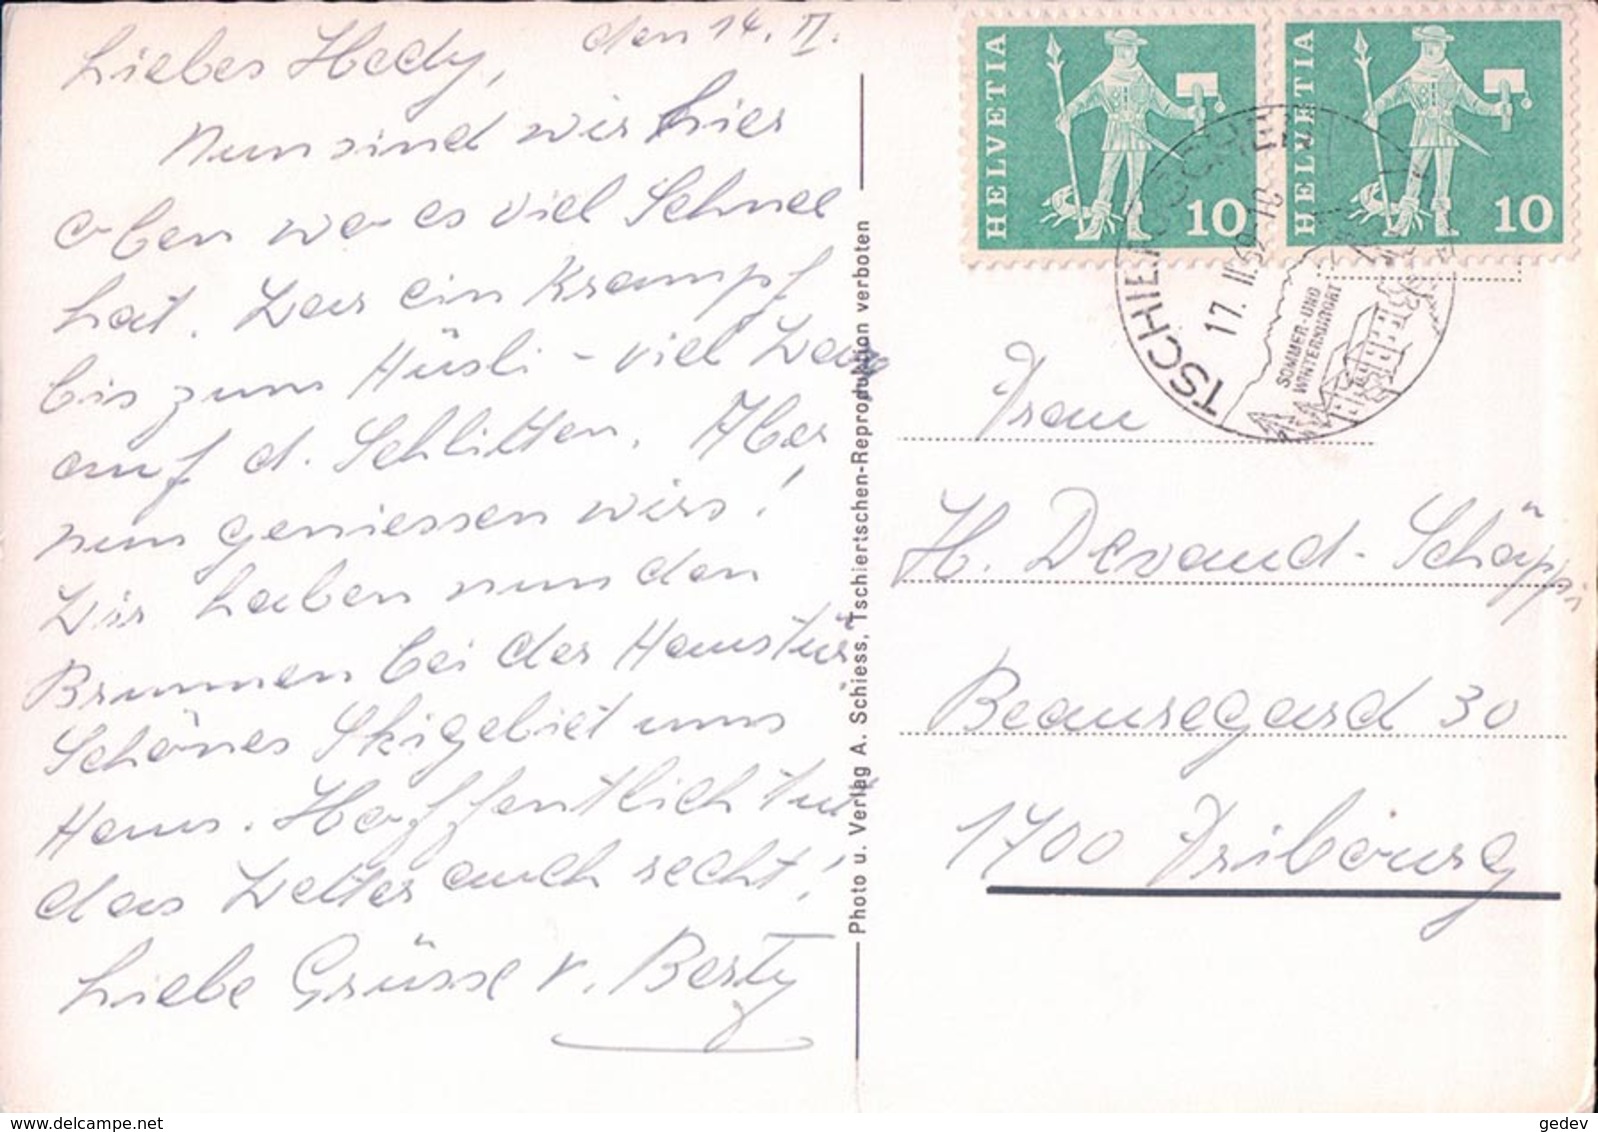 den 14. II.
Liebes Hedy,
Nun sind wir hier
oben wo es viel Schnee
hat. War ein Krampf
bis zum Hüsli – viel War
auf d. Schlitten. Aber
nun geniessen wirs!
Wir haben nun den
Brunnen bei der Haustür
Schönes Skigebiet ums
Haus. Hoffentlich tut
das Wetter auch recht!
Liebe Grüsse v. Berty
Photo u. Verlag A. Schiess, Tschiertschen-Reproduktion verboten
HELVETIA 10
HELVETIA 10
TSCHIERTSCHEN
17. II. 69-10
SOMMER- UND
WINTERKURORT
Frau
H. Devaud-Schäppi
Beauregard 30
1700 Fribourg
www.delcampe.net
gedev